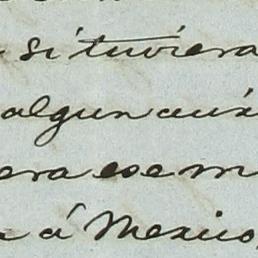 si tuviera
algun
era ese
á Mexico